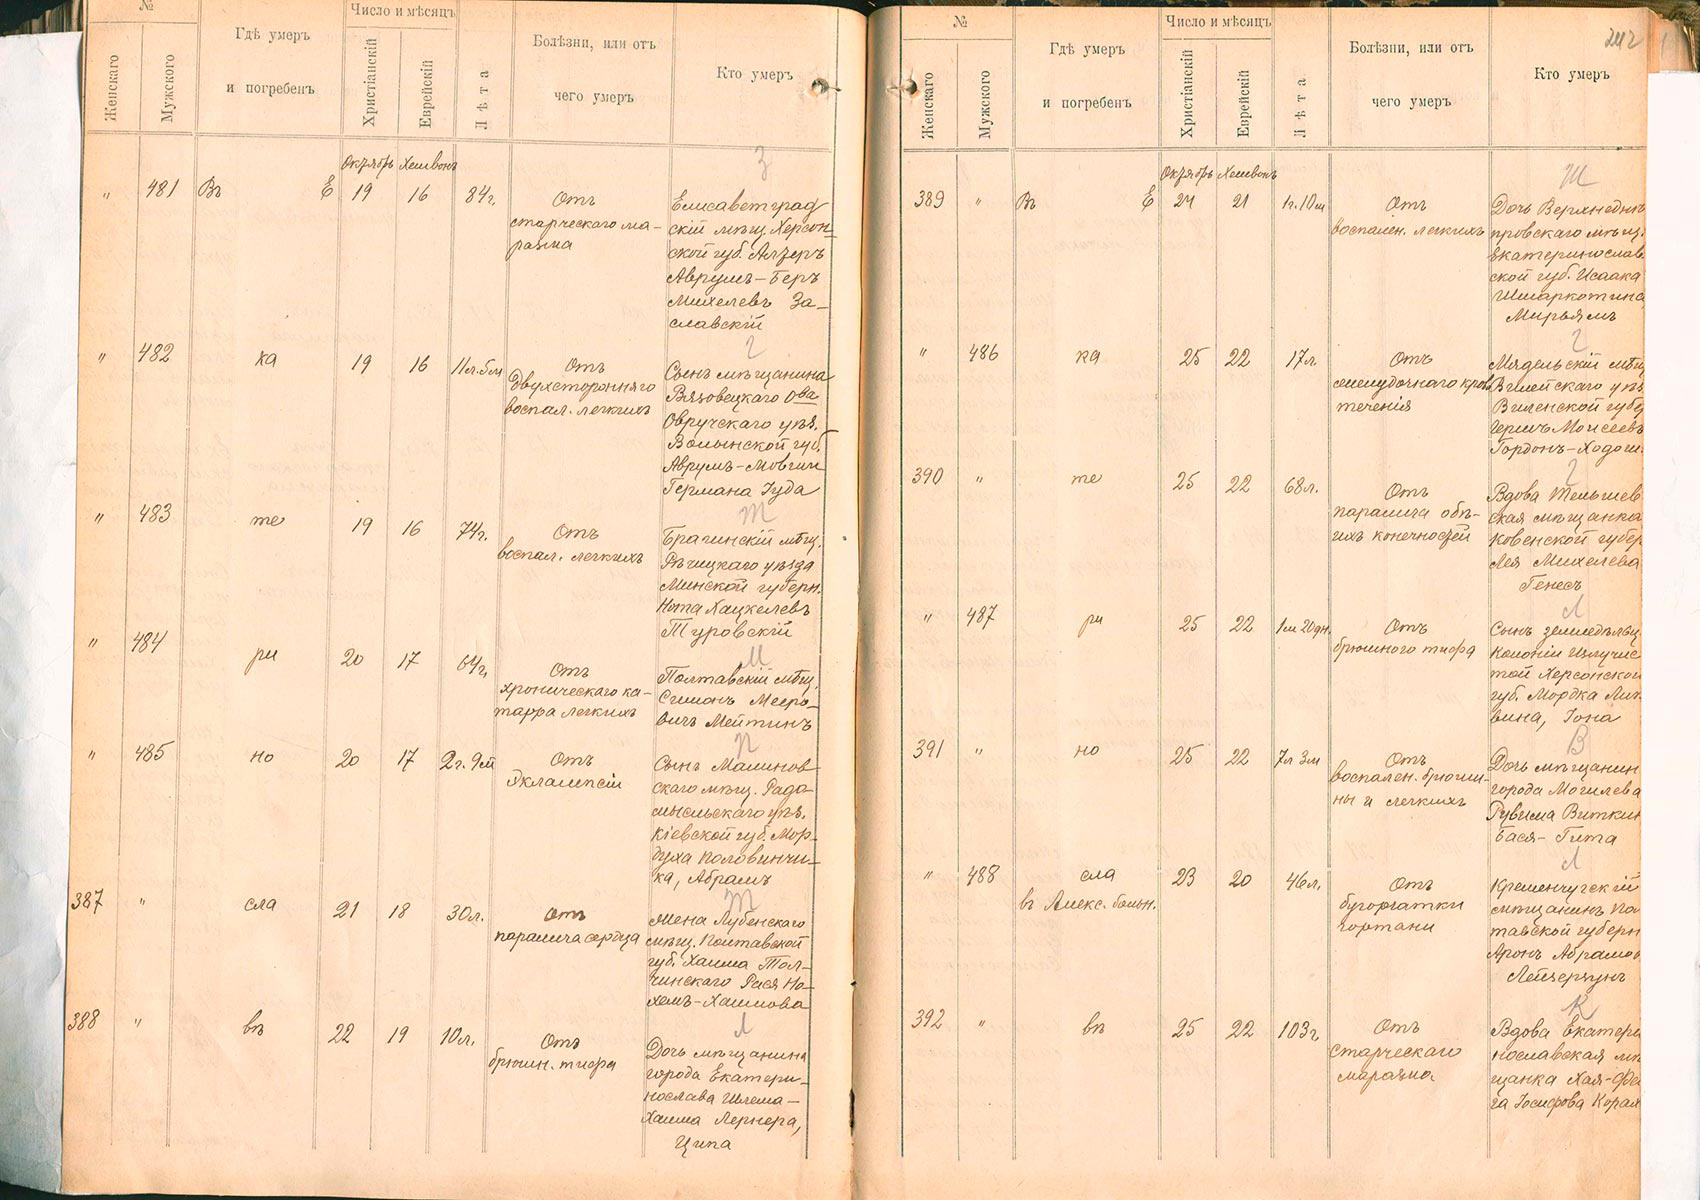 №
Женскаго
Мужского
Гдѣ умеръ
и погребенъ
Число и мѣсяцъ
Христіанскій
Еврейскій
Лѣта
Болѣзни, или отъ
чего умеръ
Кто умеръ
Октябрь Хешвонъ
З
" 481 Въ Е 19 16 84г.
Отъ
старческаго ма-
разма
Елисаветград
скій мѣщ. Херсон-
ской губ. Алтеръ
Аврумъ-Беръ
Михелевъ За-
славскій
" 482 ка 19 16 11л.5м
Отъ
двухсторонняго
воспал. легкихъ
Г
Сынъ мѣщанина
Вязовецкаго Ова
Овручскаго уѣз.
Волынской губ.
Аврумъ-Мовши
Германа Іуда
" 483 те 19 16 74г.
Отъ
воспал. легкихъ
Т
Брагинскій мѣщ.
Рѣчицкаго уѣзда
Минской губерн.
Нота Хацкелевъ
Туровскій
" 484 ри 20 17 64г.
Отъ
хроническаго ка-
тарра легкихъ
М
Полтавскій мѣщ.
Симонъ Мееро-
вичъ Мейтинъ
" 485 но 20 17 2г. 9м
Отъ
Эклампсіи
П
Сынъ Малинов-
скаго мѣщ. Радо-
мысльскаго уѣз.
Кіевской губ. Мор-
духа Половинчи-
ка, Абрамъ
387 " сла 21 18 30л.
Отъ
паралича сердца
Т
Жена Лубенскаго
мѣщ. Полтавской
губ. Хаима Тол-
чинскаго Рася Но-
хемъ-Хаимова
388 " вѣ 22 19 10л.
Отъ
брюшн. тифа
Л
Дочь мѣщанина
города Екатери-
нослава Шлема-
Хаима Лернера,
Ципа
242
№
Женскаго
Мужского
Гдѣ умеръ
и погребенъ
Число и мѣсяцъ
Христіанскій
Еврейскій
Лѣта
Болѣзни, или отъ
чего умеръ
Кто умеръ
Октябрь Хешвонъ
Ш
389 " Въ Е 24 21 1г.10м
Отъ
воспален. легкихъ
Дочь Верхнеднѣ
провскаго мѣщ.
Екатеринослав
ской губ. Исаака
Шмаркотина
Мирьямъ
" 486 ка 25 22 17л.
Отъ
желудочнаго кров
теченія
Г
Мядельскій мѣщ
Вилейскаго уѣз
Виленской губер
Гершъ Моисеевъ
Гордонъ-Ходош
390 " те 25 22 68л.
Отъ
паралича обѣ-
ихъ конечностей
Г
Вдова Тельшев
ская мѣщанка
Ковенской губер
Лея Михелева
Генесъ
" 487 ри 25 22 1м 20дн.
Отъ
брюшного тифа
Л
Сынъ земледѣльц
колоніи Излучис
той Херсонской
губ. Мордка Лит
вина, Іона
391 " но 25 22 7л 3м
Отъ
воспален. брюши-
ны и легкихъ
В
Дочь мѣщанин
города Могилева
Рувима Виткин
Бася-Гита
" 488 сла 23 20 46л.
въ Алекс. больн.
Отъ
бугорчатки
гортани
Л
Кременчугскій
мѣщанинъ По
тавской губерн
Аронъ Абрамов
Лейцерзунъ
392 " вѣ 25 22 103г
Отъ
старческаго
маразма
К
Вдова Екатери
нославская мѣ
щанка Хая-Фей
га Іосифова Корал